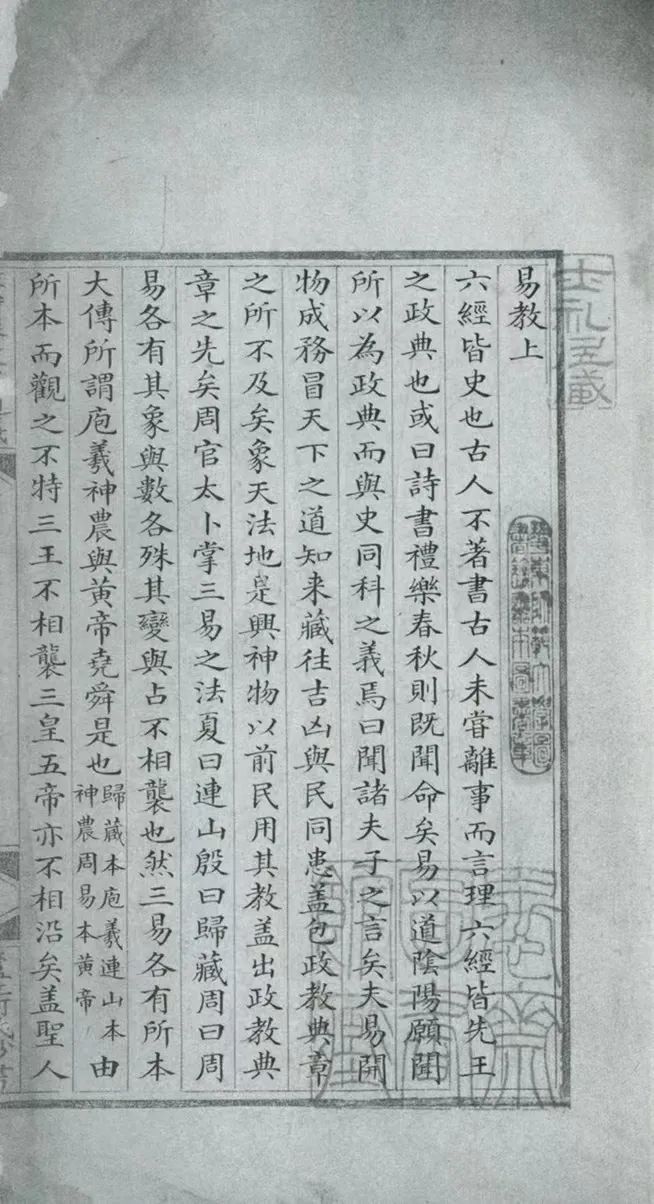 易教上
六經皆史也古人不著書古人未嘗離事而言理六經皆先王
之政典也或曰詩書禮樂春秋則既聞命矣易以道陰陽願聞
所以為政典而與史同科之義焉曰聞諸夫子之言矣夫易開
物成務冒天下之道知来藏往吉凶與民同患盖包政教典章
之所不及矣象天法地是興神物以前民用其教盖出政教典
章之先矣周官太卜掌三易之法夏曰連山殷曰歸藏周曰周
易各有其象與數各殊其變與占不相襲也然三易各有所本
大傳所謂庖羲神農與黄帝堯舜是也歸藏本庖羲連山本神農周易本黄帝由
所本而觀之不特三王不相襲三皇五帝亦不相沿矣盖聖人